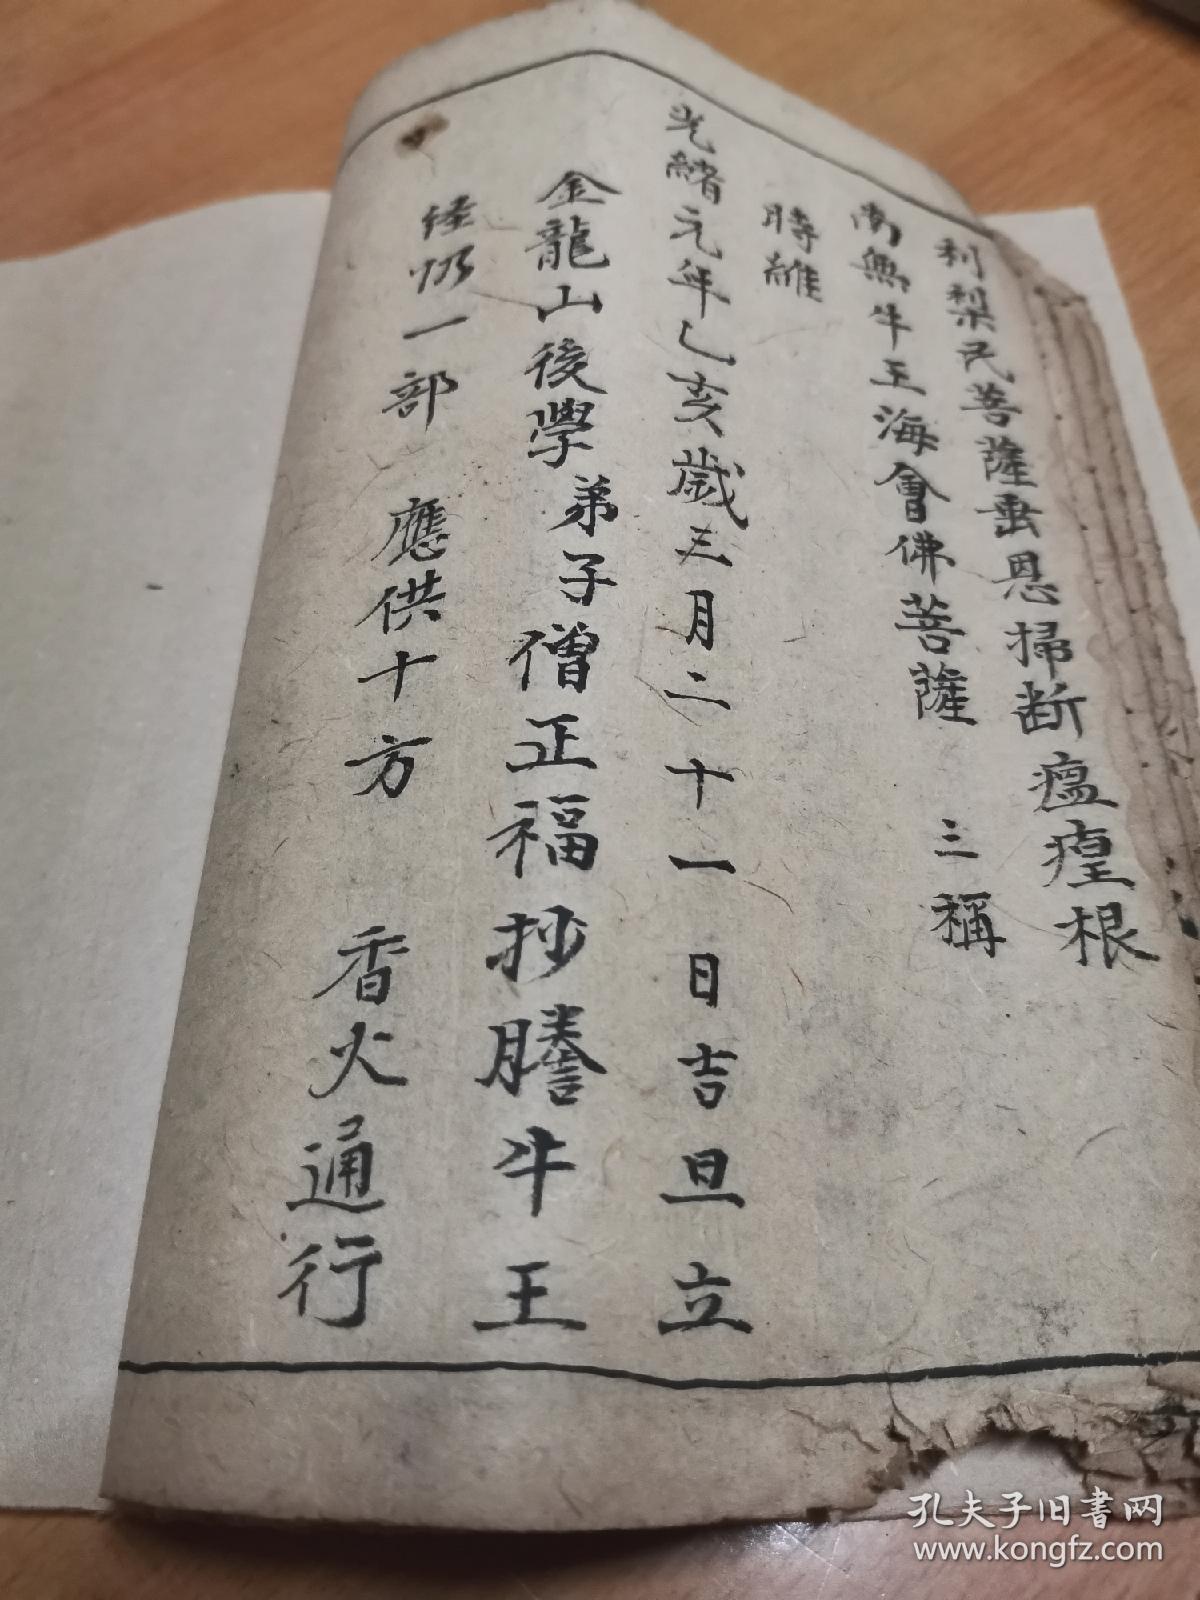 利梨民菩薩垂恩掃断瘟瘴根
南無牛王海會佛菩薩 三稱
時維
光緒元年乙亥歲三月二十一日吉旦立
金龍山後學弟子僧正福抄謄牛王
一部 應供十方 香火通行
孔夫子旧書网
www.kongfz.com